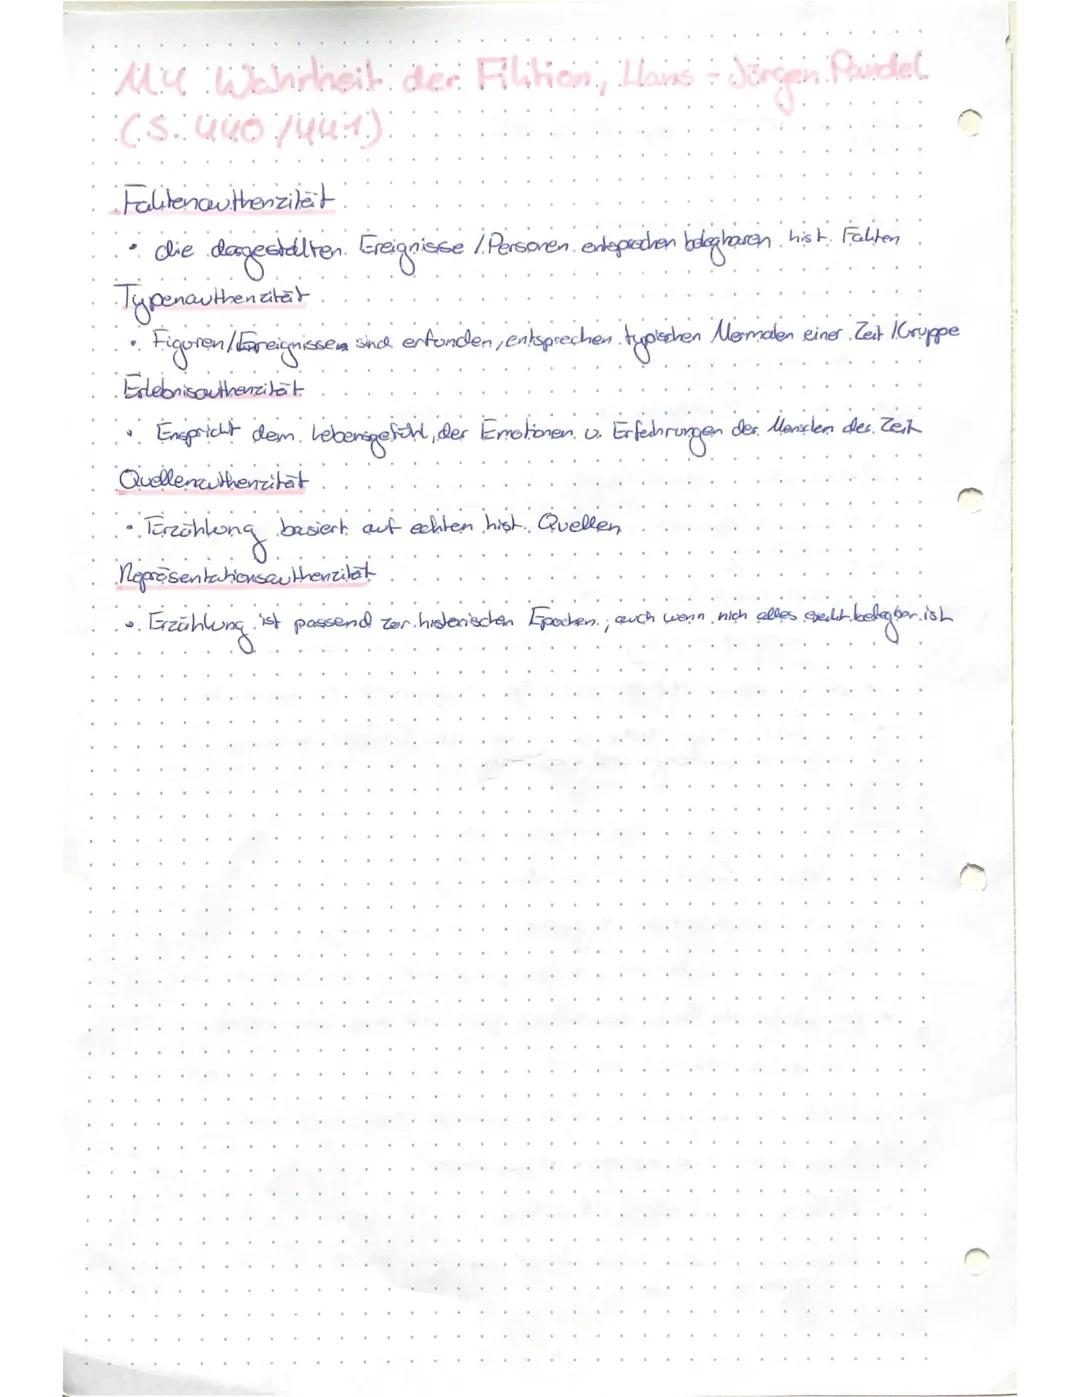 M4 Wahrheit der Fiktion, Hans-Jörgen Pandel
(S. 440/441)
Faktenauthenzität
• die dargestellten Ereignisse / Personen entsprechen belegbaren hist. Fakten
Typenauthenzität
• Figuren/Ereignissen sind erfunden, entsprechen typischen Mermalen einer Zeit / Gruppe
Erlebnisauthenzität
• Enspricht dem Lebensgefühl, der Emotionen u. Erfahrungen der Menschen der Zeit
Quellenauthenzität
• Erzählung basiert auf echten hist. Quellen
Repräsentationsauthenzität
• Erzählung ist passend zur historischen Epochen, auch wenn nich alles belegbar ist